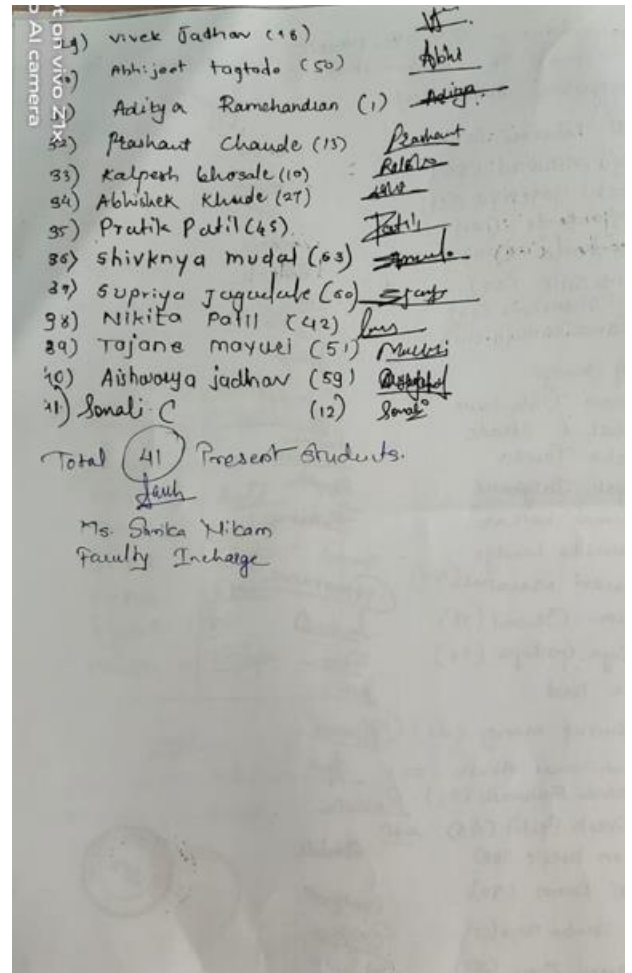 29) vivek Jadhav (18)
30) Abhijeet tagtode (50) Abhi
31) Aditya Ramchandran (1) Aditya
32) Prashant Chaude (13) Prashant
33) Kalpesh bhosale (10)
34) Abhishek Khude (27)
35) Pratik Patil (45) Patil
36) Shivknya mudal (63)
37) Supriya Jagudale (60)
38) Nikita Patil (42)
39) Tajane mayuri (51) Mayuri
40) Aishwarya jadhav (59)
41) Sonali C (12) Sonali
Total 41 Present Students.
Ms. Nikam
Faculty Incharge
t on vivo Z1x
AI camera